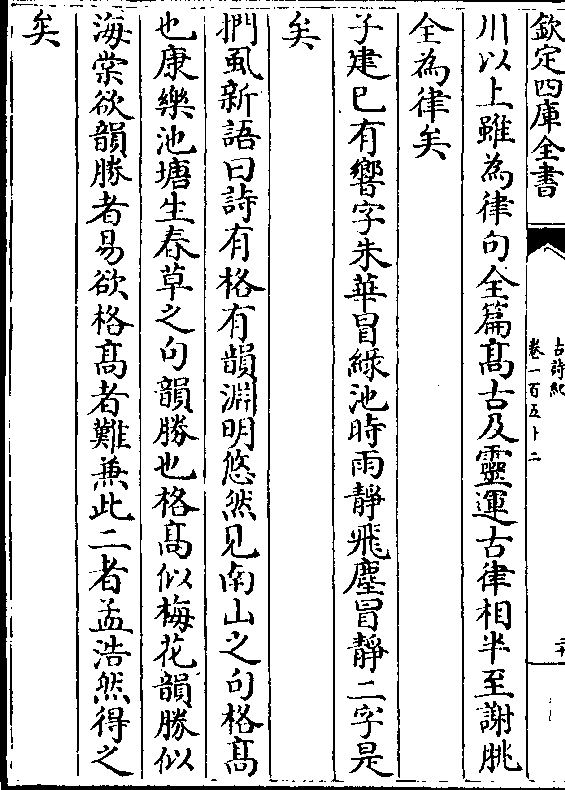 欽定四庫全書
古詩紀
卷一百五十二
二十
川以上雖為律句全篇髙古及靈運古律相半至謝朓
全為律矣
子建已有響字朱華冒綠池時雨靜飛塵冒靜二字是
矣
捫虱新語曰詩有格有韻淵明悠然見南山之句格髙
也康樂池塘生春草之句韻勝也格髙似梅花韻勝似
海棠欲韻勝者易欲格髙者難兼此二者孟浩然得之
矣